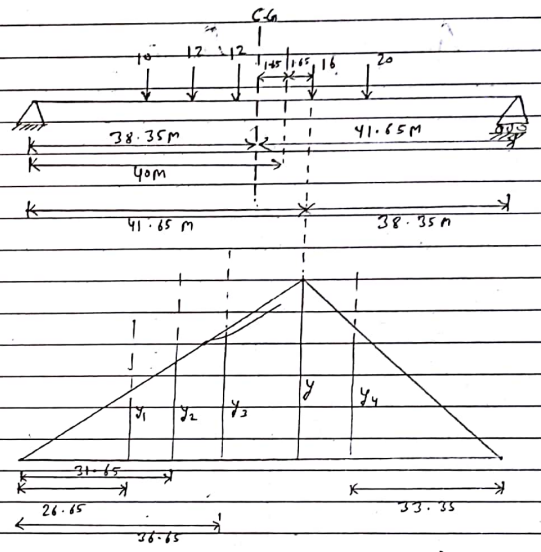 C.G
10 12 12 1.65 1.65 16 20
38.35M 41.65M
40M
41.65 M 38.35M
y1 y2 y3 y y4
31.65
26.65 33.35
36.65